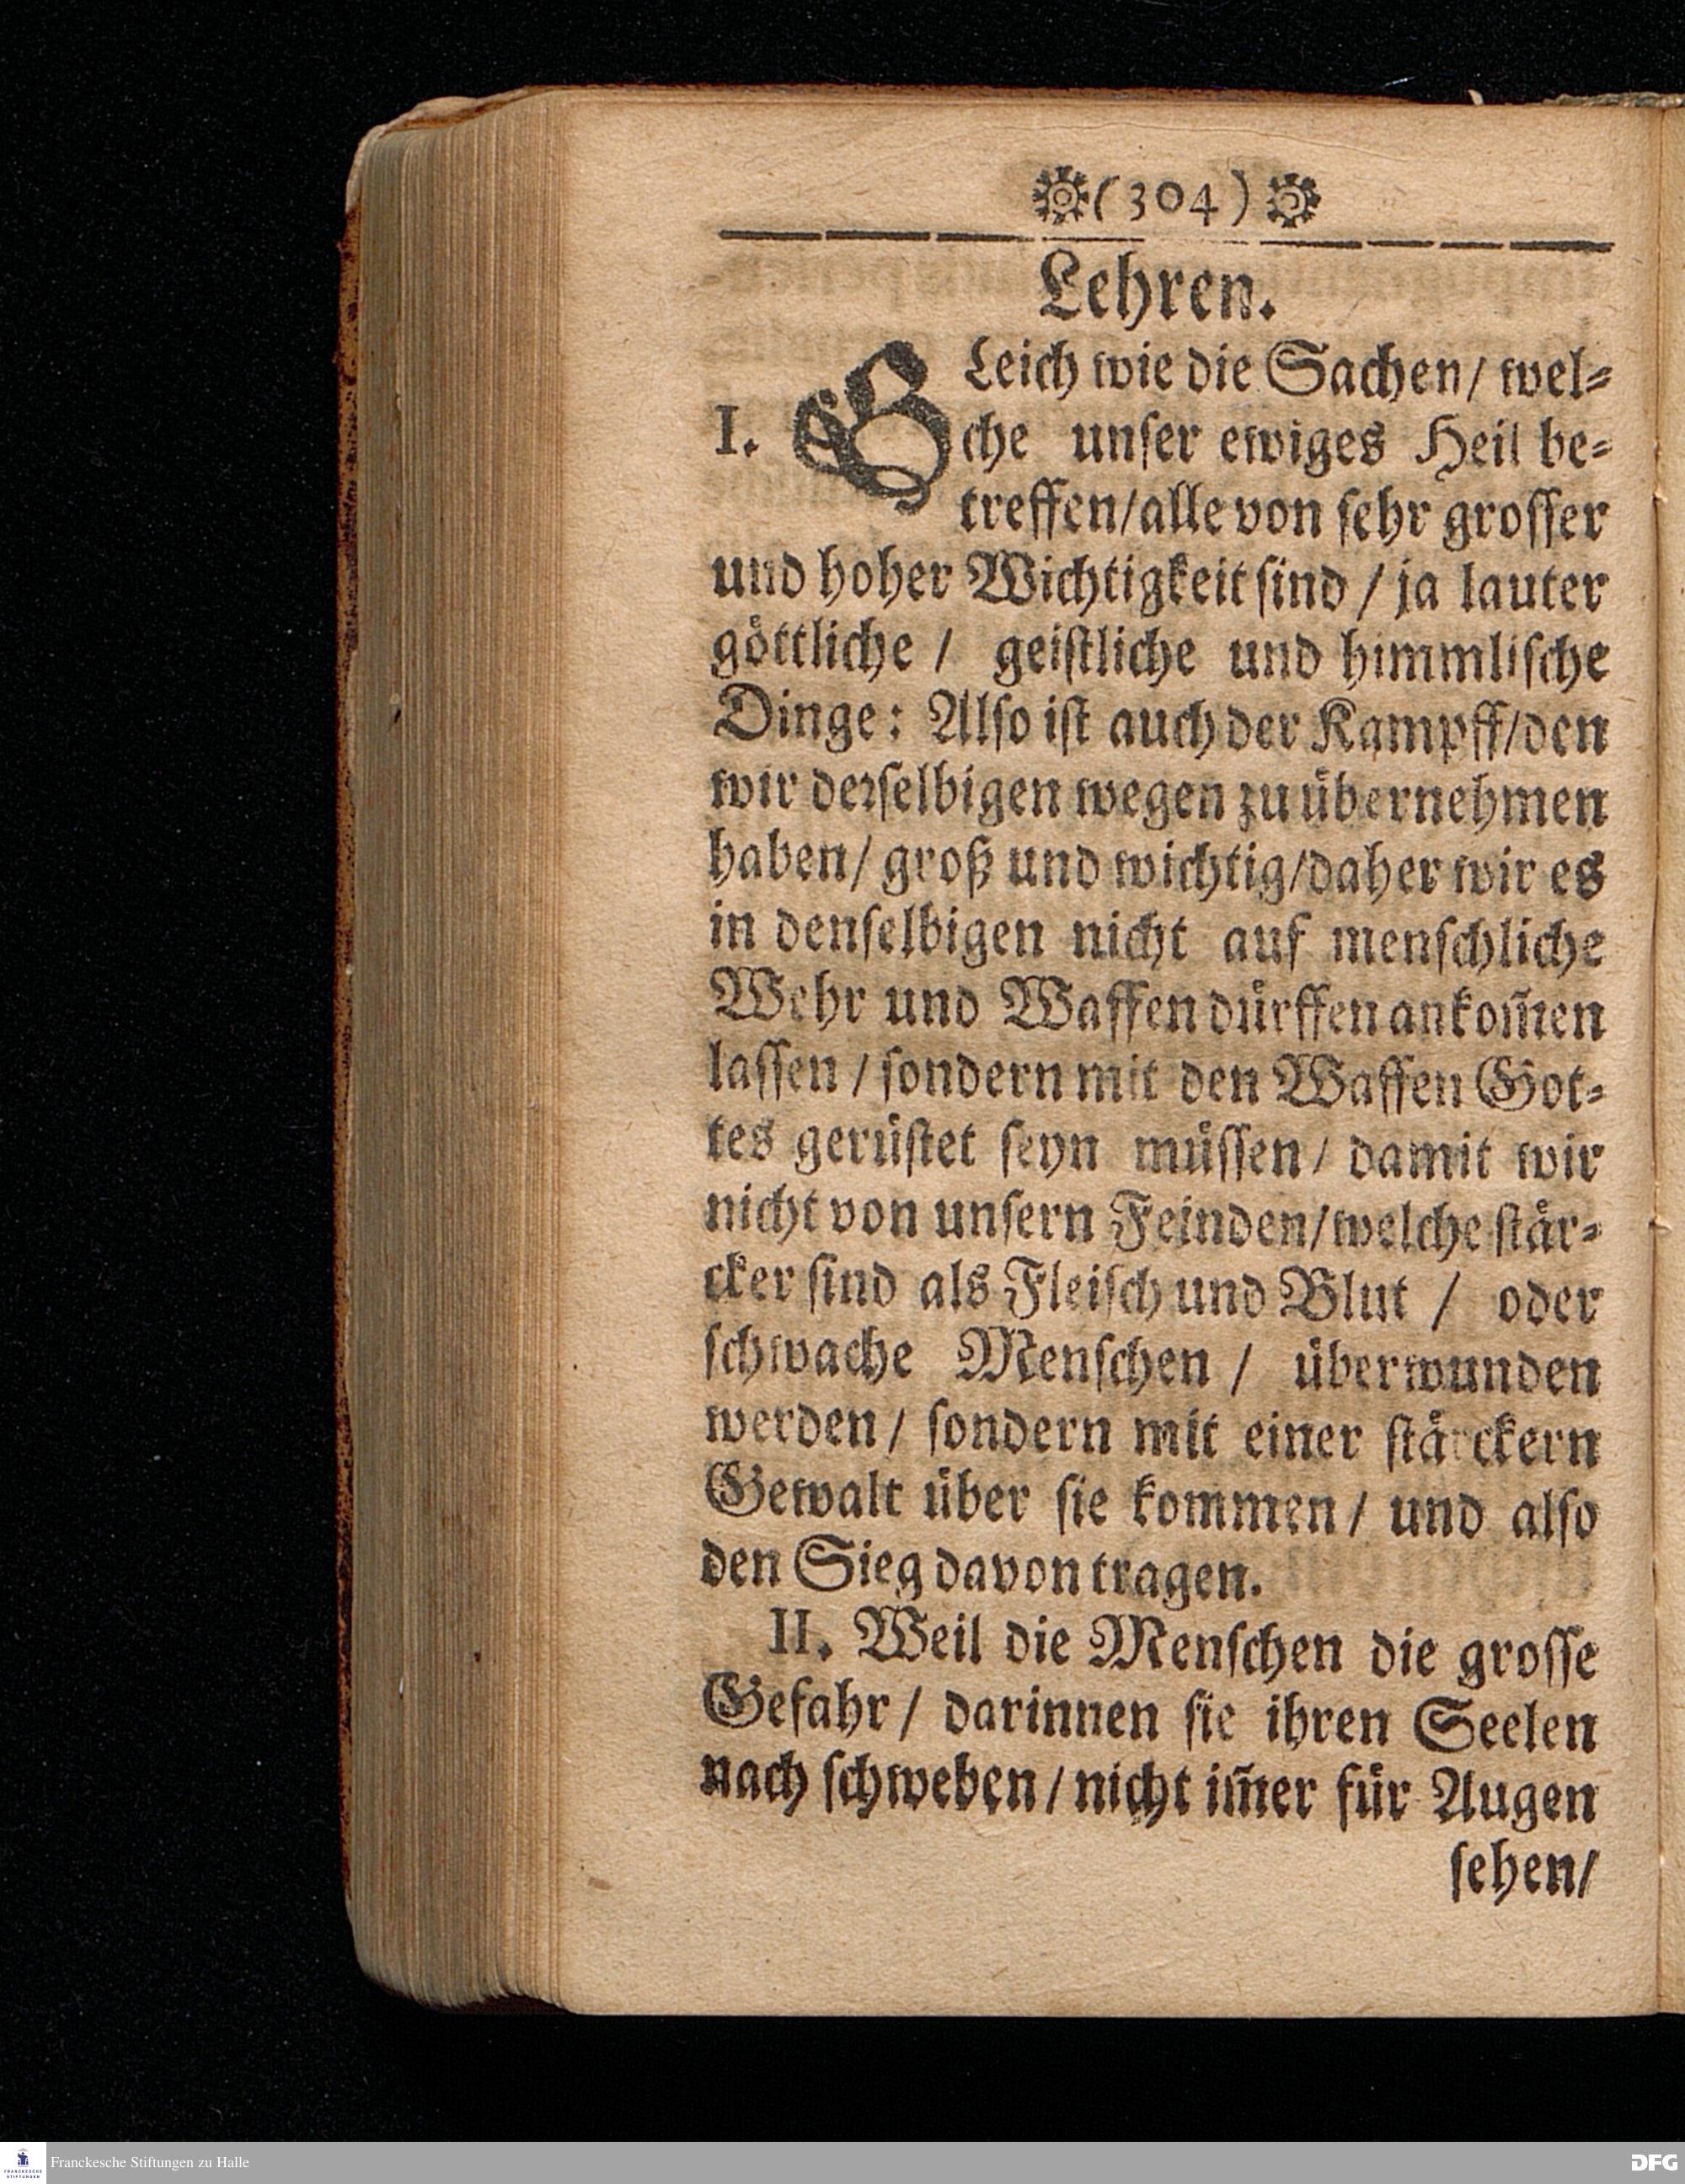 (304)
Lehren.
I. GLeich wie die Sachen/ wel⸗
che unſer ewiges Heil be⸗
treffen/alle von ſehr groſſer
und hoher Wichtigkeit ſind / ja lauter
goͤttliche / geiſtliche und himmliſche
Dinge: Alſo iſt auch der Kampff/den
wir deꝛſelbigen wegen zu uͤbernehmen
haben/ groß und wichtig/daher wir es
in denſelbigen nicht auf menſchliche
Wehr und Waffen duͤrffen ankom̃en
laſſen / ſondern mit den Waffen Got⸗
tes geruͤſtet ſeyn muͤſſen/ damit wir
nicht von unſern Feinden/welche ſtaͤr⸗
cker ſind als Fleiſch und Blut / oder
ſchwache Menſchen / uͤberwunden
werden/ ſondern mit einer ſtaͤrckern
Gewalt uͤber ſie kommen/ und alſo
den Sieg davon tragen.
II. Weil die Menſchen die groſſe
Gefahr/ darinnen ſie ihren Seelen
nach ſchweben/nicht im̃er fuͤr Augen
ſehen/
FRANCKESCHE STIFTUNGEN
Franckesche Stiftungen zu Halle
DFG